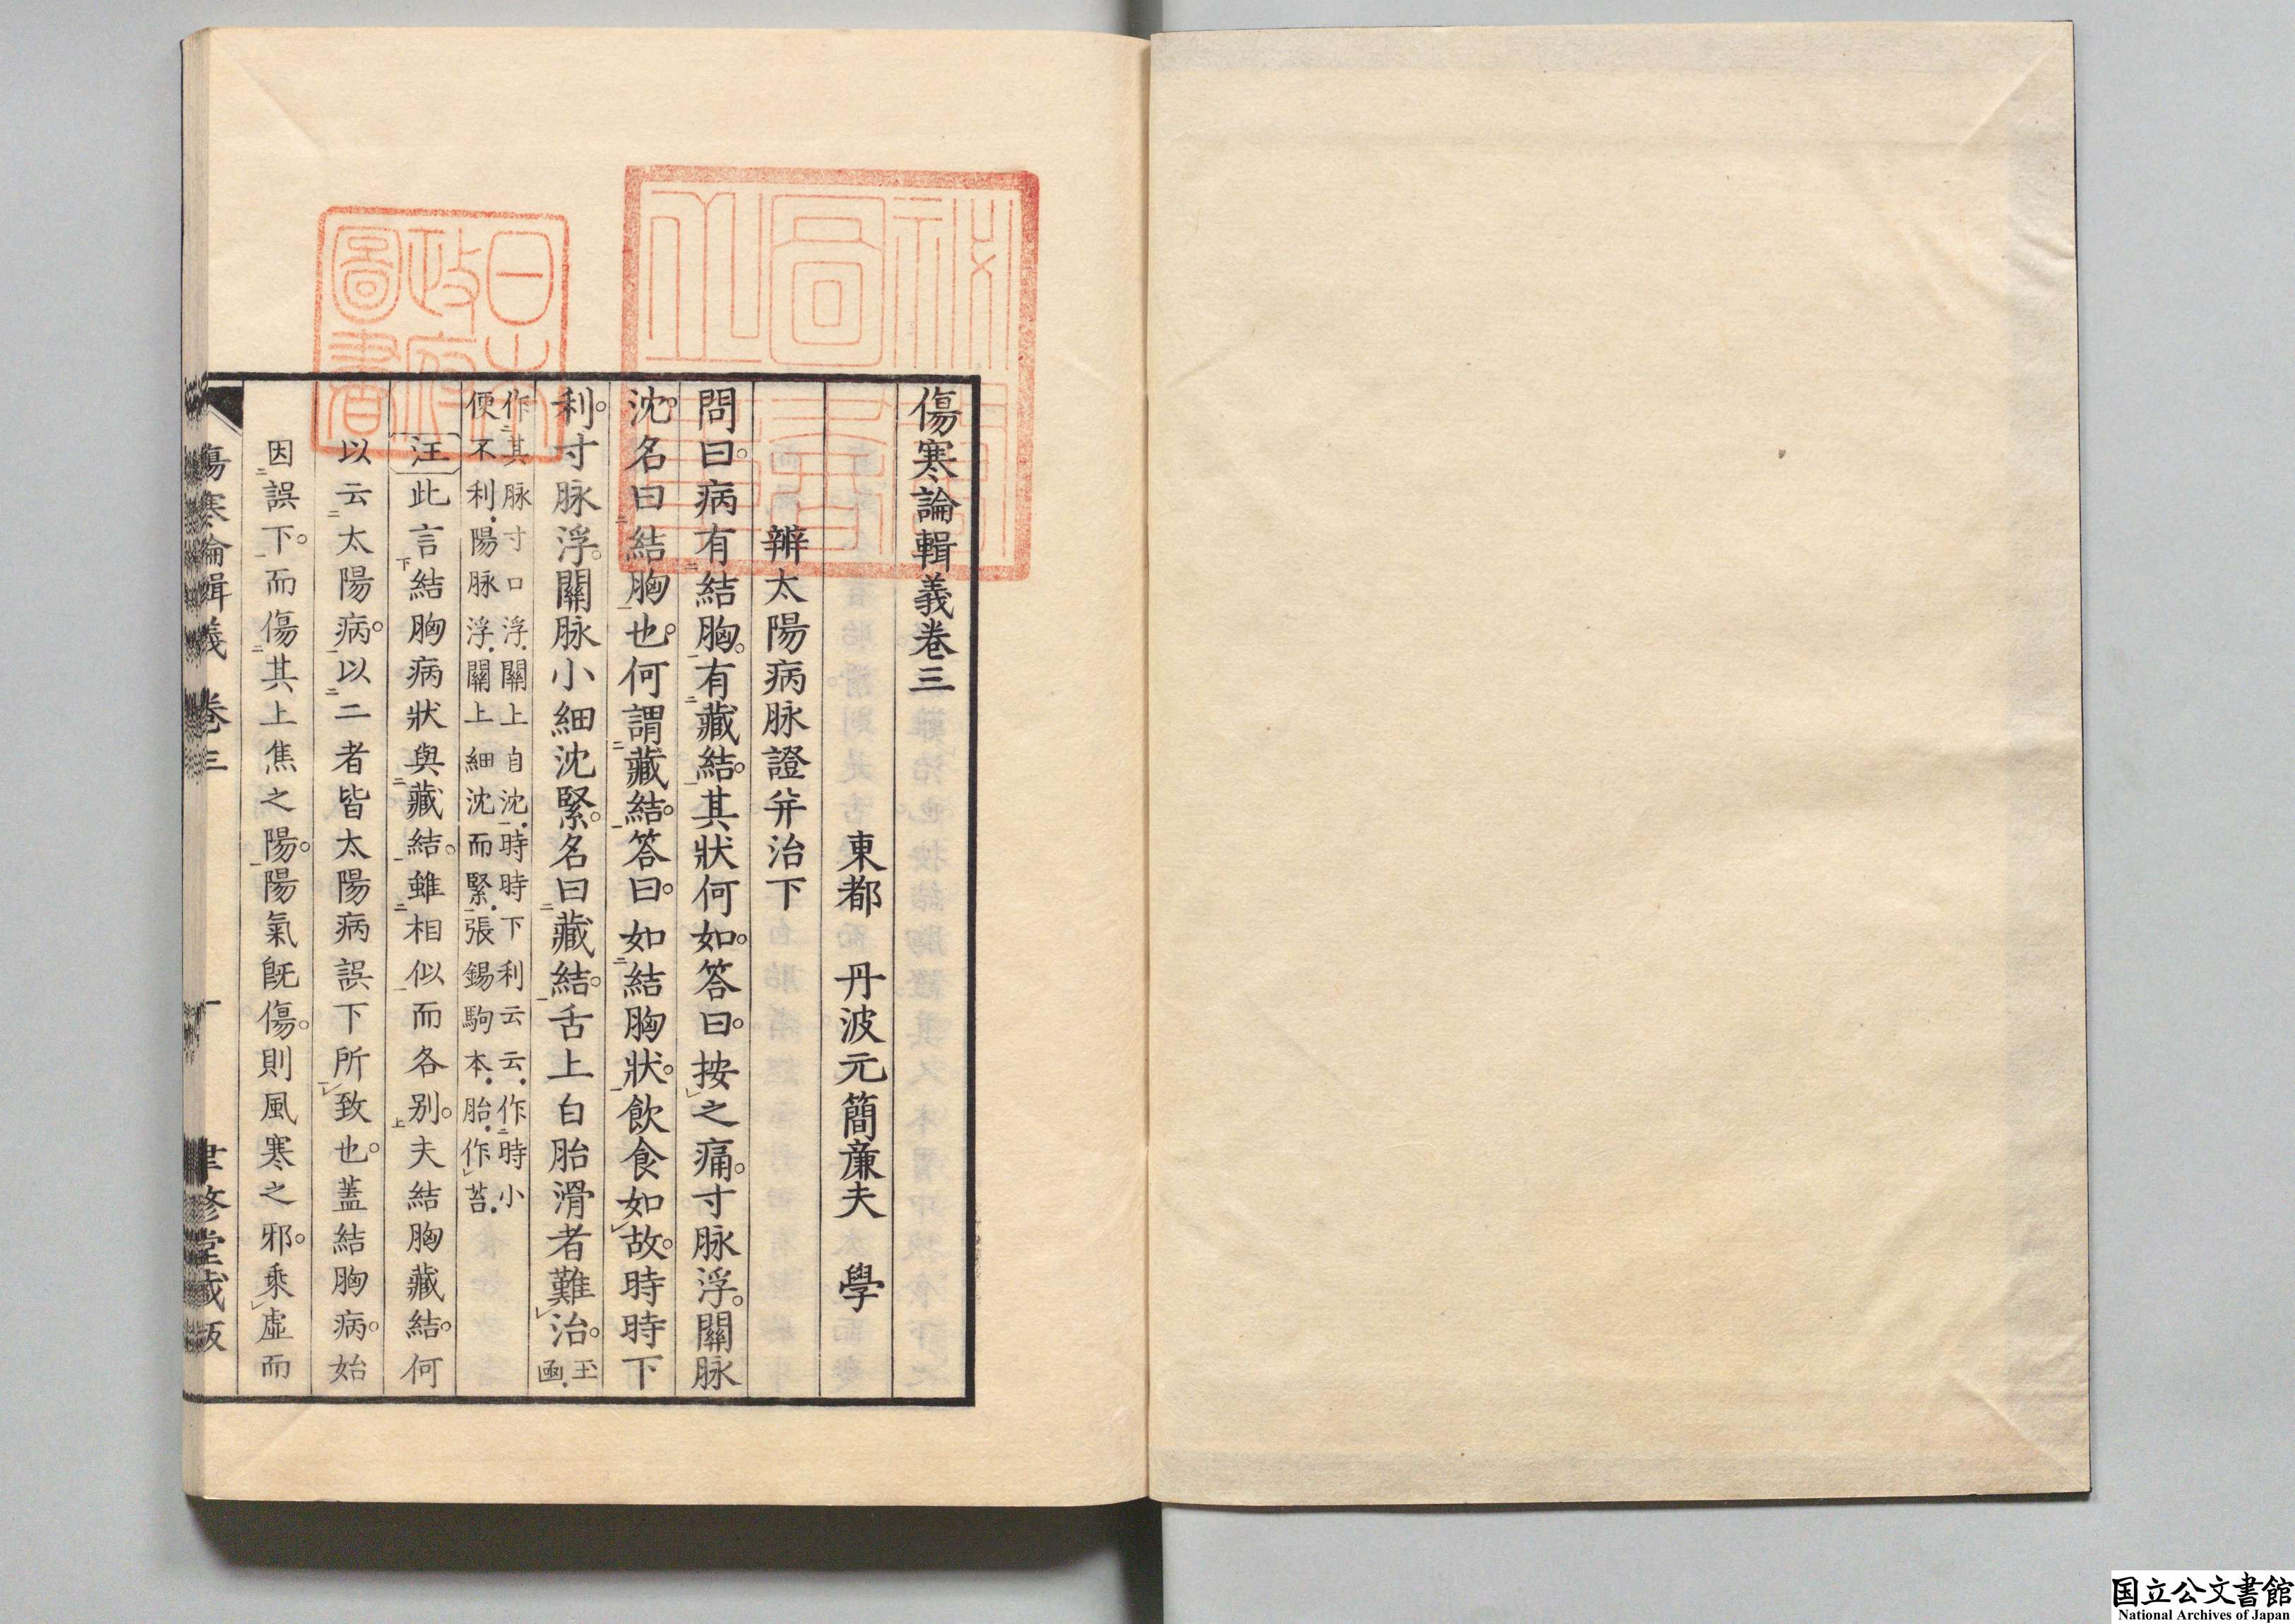 傷寒論輯義卷三
東都 丹波元簡廉夫 學
辨太陽病脉證并治下
問曰。病有結胸。有藏結。其狀何如。答曰。按之痛。寸脉浮。關脉
沈。名曰結胸也。何謂藏結。答曰。如結胸狀。飲食如故。時時下
利。寸脉浮。關脉小細沈緊。名曰藏結。舌上白胎滑者難治。玉
函。
作其脉寸口浮。關上自沈。時時下利云云。作時小
便不利。陽脉浮。關上細沈而緊。張錫駒本。胎。作苔。
汪此言結胸病狀與藏結。雖相似而各別。夫結胸藏結。何
以云太陽病。以二者皆太陽病誤下所致也。蓋結胸病。始
因誤下。而傷其上焦之陽。陽氣既傷。則風寒之邪。乘虛而
傷寒論輯義 卷三 一 聿修堂藏版
日本
政府
圖書
秘閣
圖書
之章
国立公文書館
National Archives of Japan